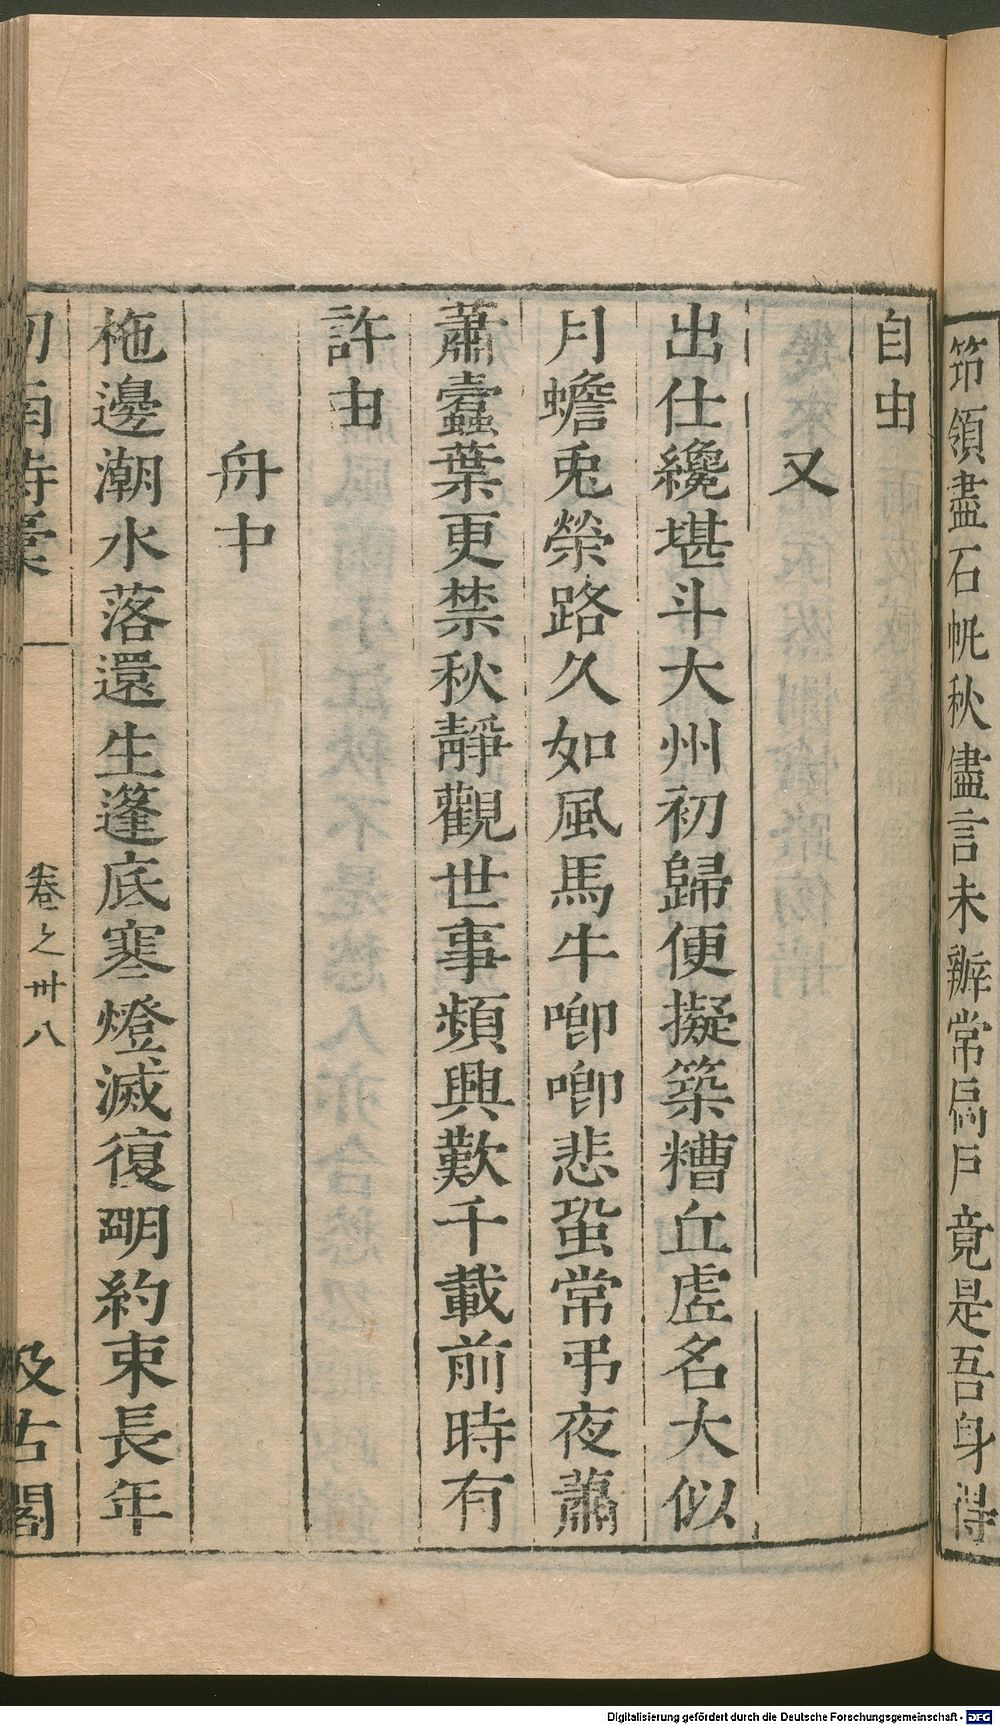 笻領盡石帆秋儘言未辦常扃戶竟是吾身得
自由
又
出仕纔堪斗大州初歸便擬築糟丘虛名大似
月蟾兎榮路久如風馬牛唧唧悲蛩常弔夜蕭
蕭蠹葉更禁秋靜觀世事頻興歎千載前時有
許由
舟中
柂邊潮水落還生蓬底寒燈滅復明約束長年
劎南詩稾
卷之卅八
汲古閣
Digitalisierung gefördert durch die Deutsche Forschungsgemeinschaft - DFG